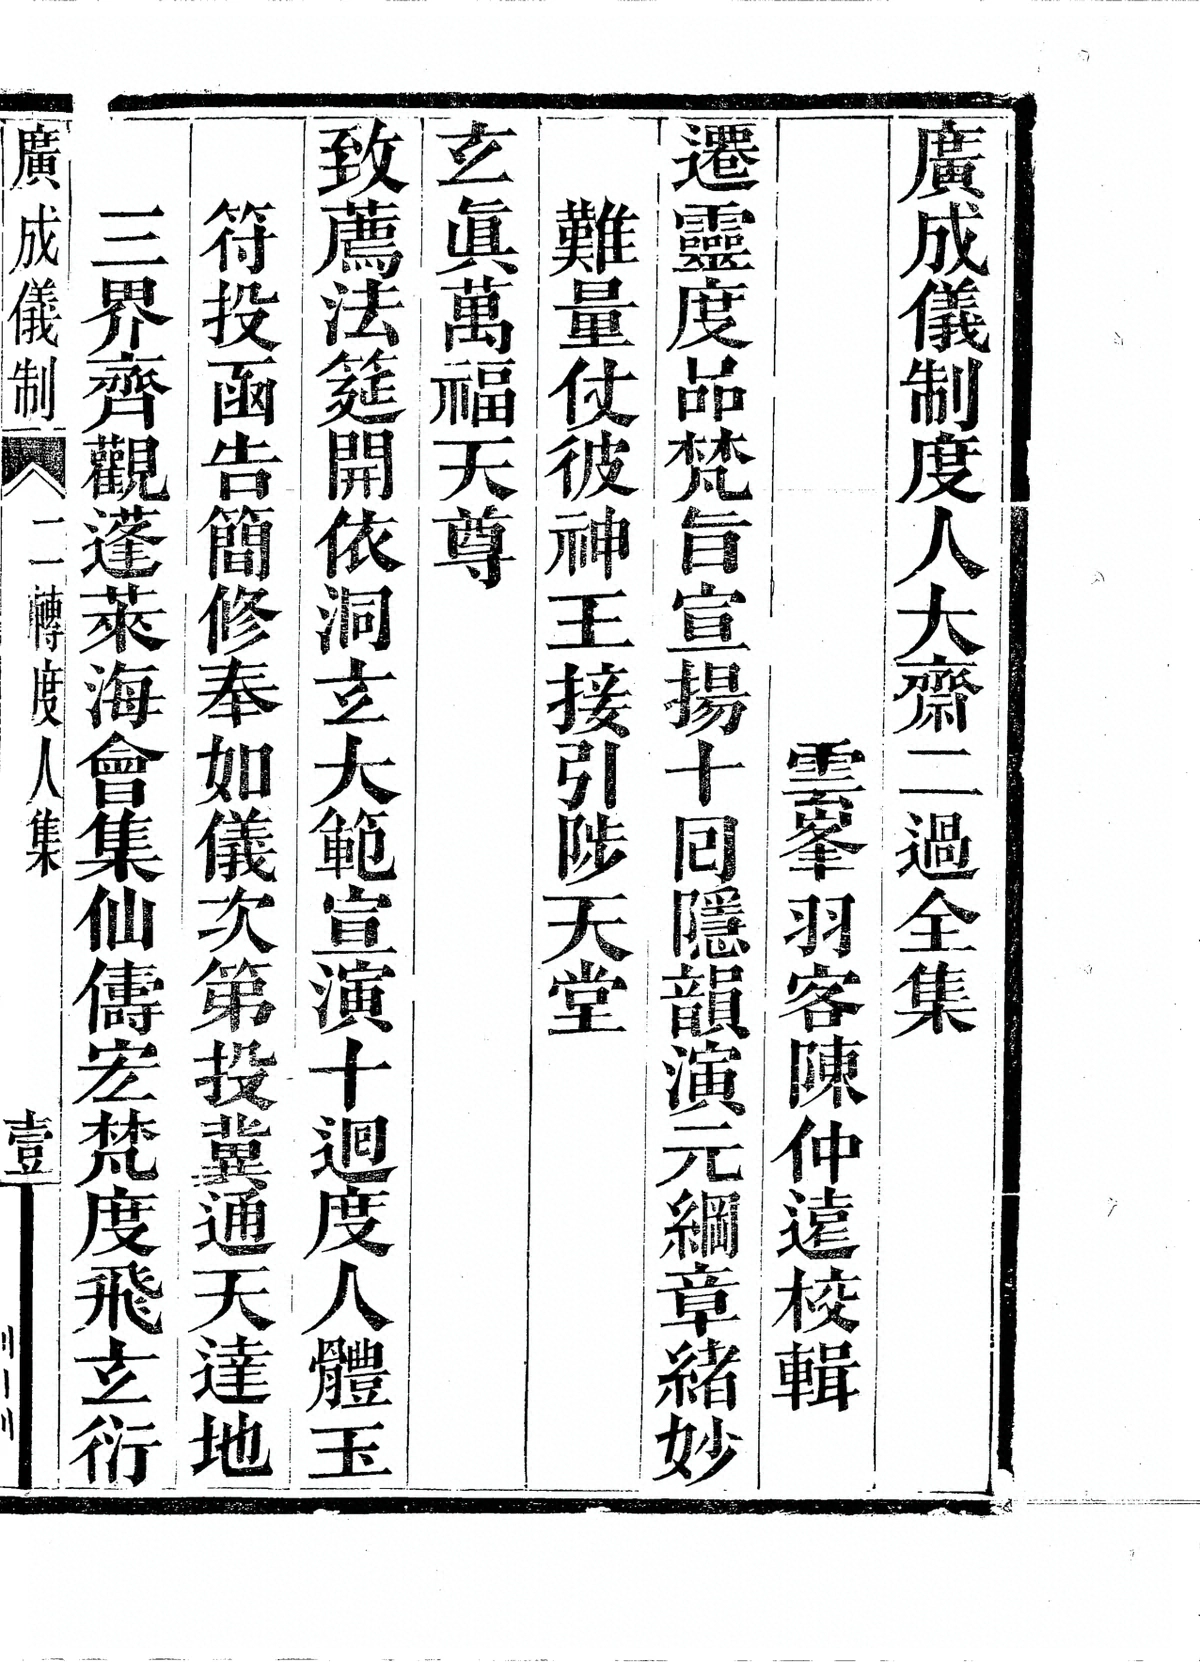 廣成儀制度人大齋二過全集
雲峯羽客陳仲遠校輯
遷靈度品梵旨宣揚十回隱韻演元綱章緒妙
難量仗彼神王接引陟天堂
玄眞萬福天尊
致薦法筵開依洞玄大範宣演十迴度人體玉
符投函告簡修奉如儀次第投冀通天達地
三界齊觀蓬萊海會集仙儔宏梵度飛玄衍
廣成儀制 二轉度人集 壹